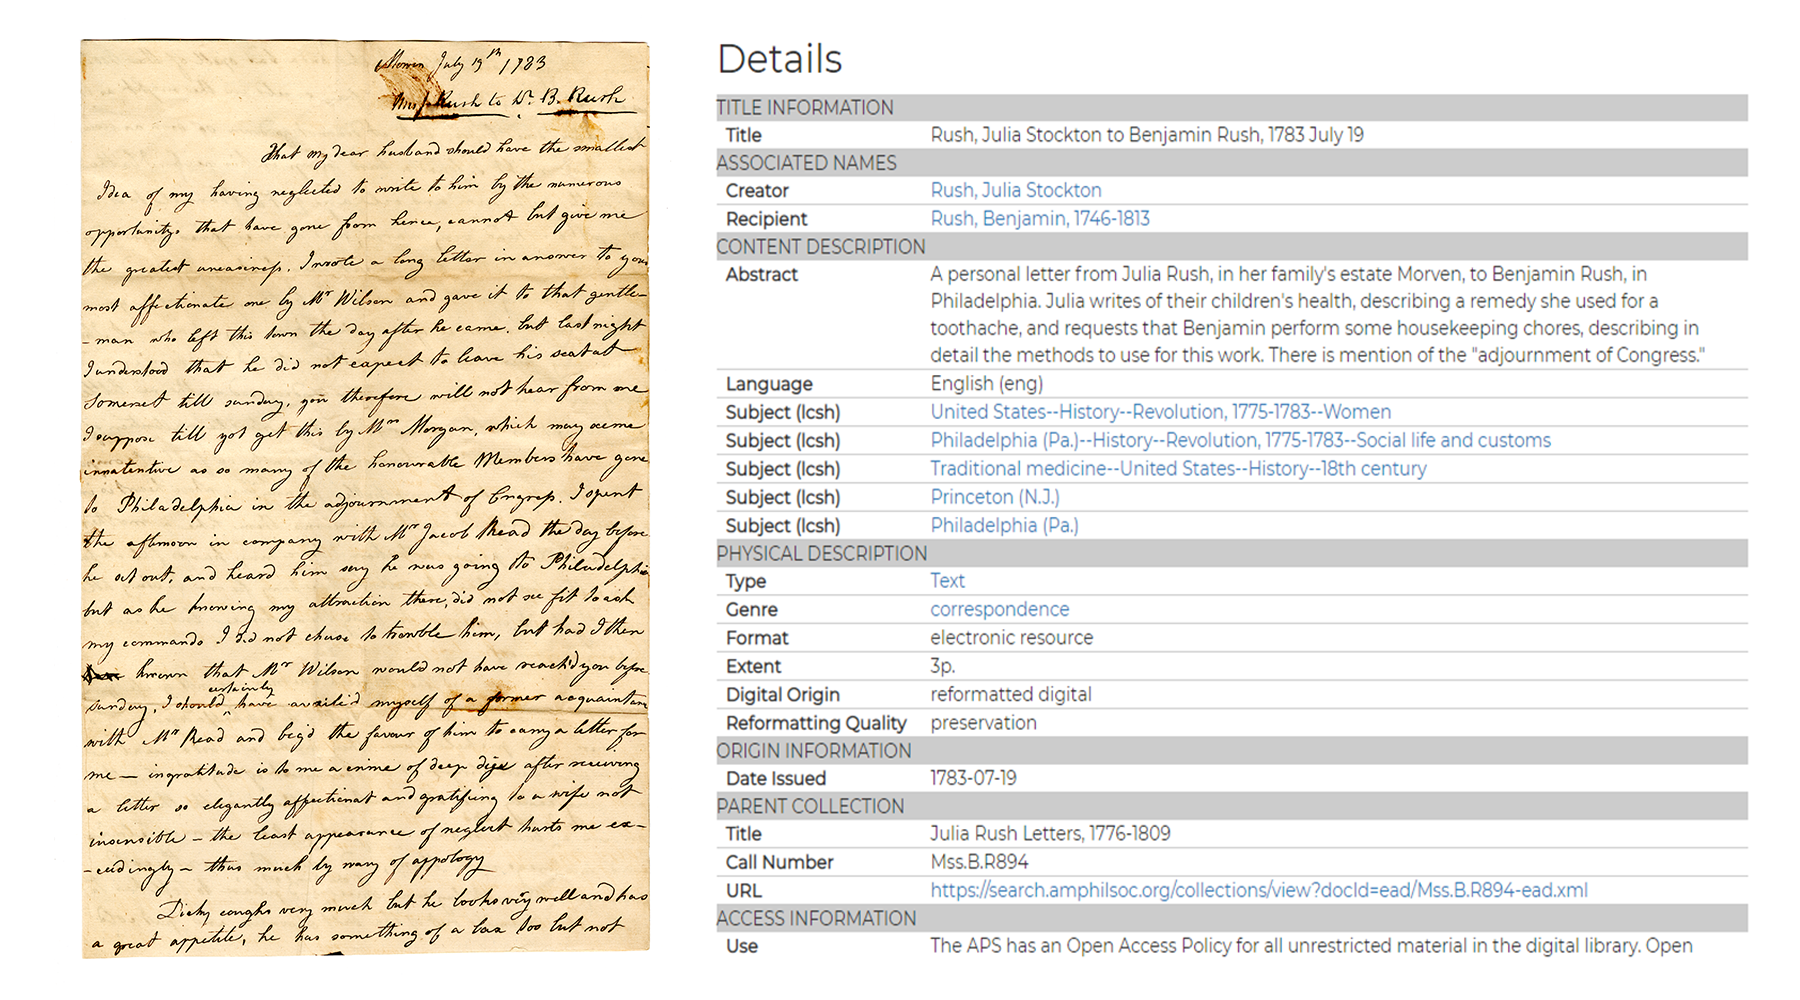 Morven July 19th 1783
Mrs Rush to Dr. B. Rush
That my dear husband should have the smallest
Idea of my having neglected to write to him by the numerous
opportunitys that have gone from hence, cannot but give me
the greatest uneasiness. I wrote a long letter in answer to your
most affectionate one by Mr Wilson and gave it to that gentle-
-man who left this town the day after he came. but last night
I understood that he did not expect to leave his seat at
Somerset till sunday, you therefore will not hear from me
I suppose till yot get this by Mrs Morgan, which may seeme
innatentive as so many of the honourable Members have gone
to Philadelphia in the adjournment of Congress. I spent
the afternoon in company with Mr Jacob Read the day before
he set out, and heard him say he was going to Philadelphia
but as he knowing my attraction there, did not see fit to ask
my commands I did not chuse to trouble him, but had I then
known that Mr Wilson would not have reach'd you before
certainly
sunday, I should have availe'd myself of a former acquaintance
with Mr Read and beg'd the favour of him to carry a letter for
me — ingratitude is to me a crime of deep die after receiving
a letter so elegantly affectionat and gratifiing to a wife not
insensible – the least appearance of neglect hurts me ex-
-ceedingly – thus much by way of appology
Dicky coughs very much but he looks very well and has
a great appetite, he has something of a lax too but not
Details
TITLE INFORMATION
Title Rush, Julia Stockton to Benjamin Rush, 1783 July 19
ASSOCIATED NAMES
Creator Rush, Julia Stockton
Recipient Rush, Benjamin, 1746-1813
CONTENT DESCRIPTION
Abstract A personal letter from Julia Rush, in her family's estate Morven, to Benjamin Rush, in
Philadelphia. Julia writes of their children's health, describing a remedy she used for a
toothache, and requests that Benjamin perform some housekeeping chores, describing in
detail the methods to use for this work. There is mention of the "adjournment of Congress."
Language English (eng)
Subject (lcsh) United States--History--Revolution, 1775-1783--Women
Subject (lcsh) Philadelphia (Pa.)--History--Revolution, 1775-1783--Social life and customs
Subject (lcsh) Traditional medicine--United States--History--18th century
Subject (lcsh) Princeton (N.J.)
Subject (lcsh) Philadelphia (Pa.)
PHYSICAL DESCRIPTION
Type Text
Genre correspondence
Format electronic resource
Extent 3p.
Digital Origin reformatted digital
Reformatting Quality preservation
ORIGIN INFORMATION
Date Issued 1783-07-19
PARENT COLLECTION
Title Julia Rush Letters, 1776-1809
Call Number Mss.B.R894
URL https://search.amphilsoc.org/collections/view?docId=ead/Mss.B.R894-ead.xml
ACCESS INFORMATION
Use The APS has an Open Access Policy for all unrestricted material in the digital library. Open